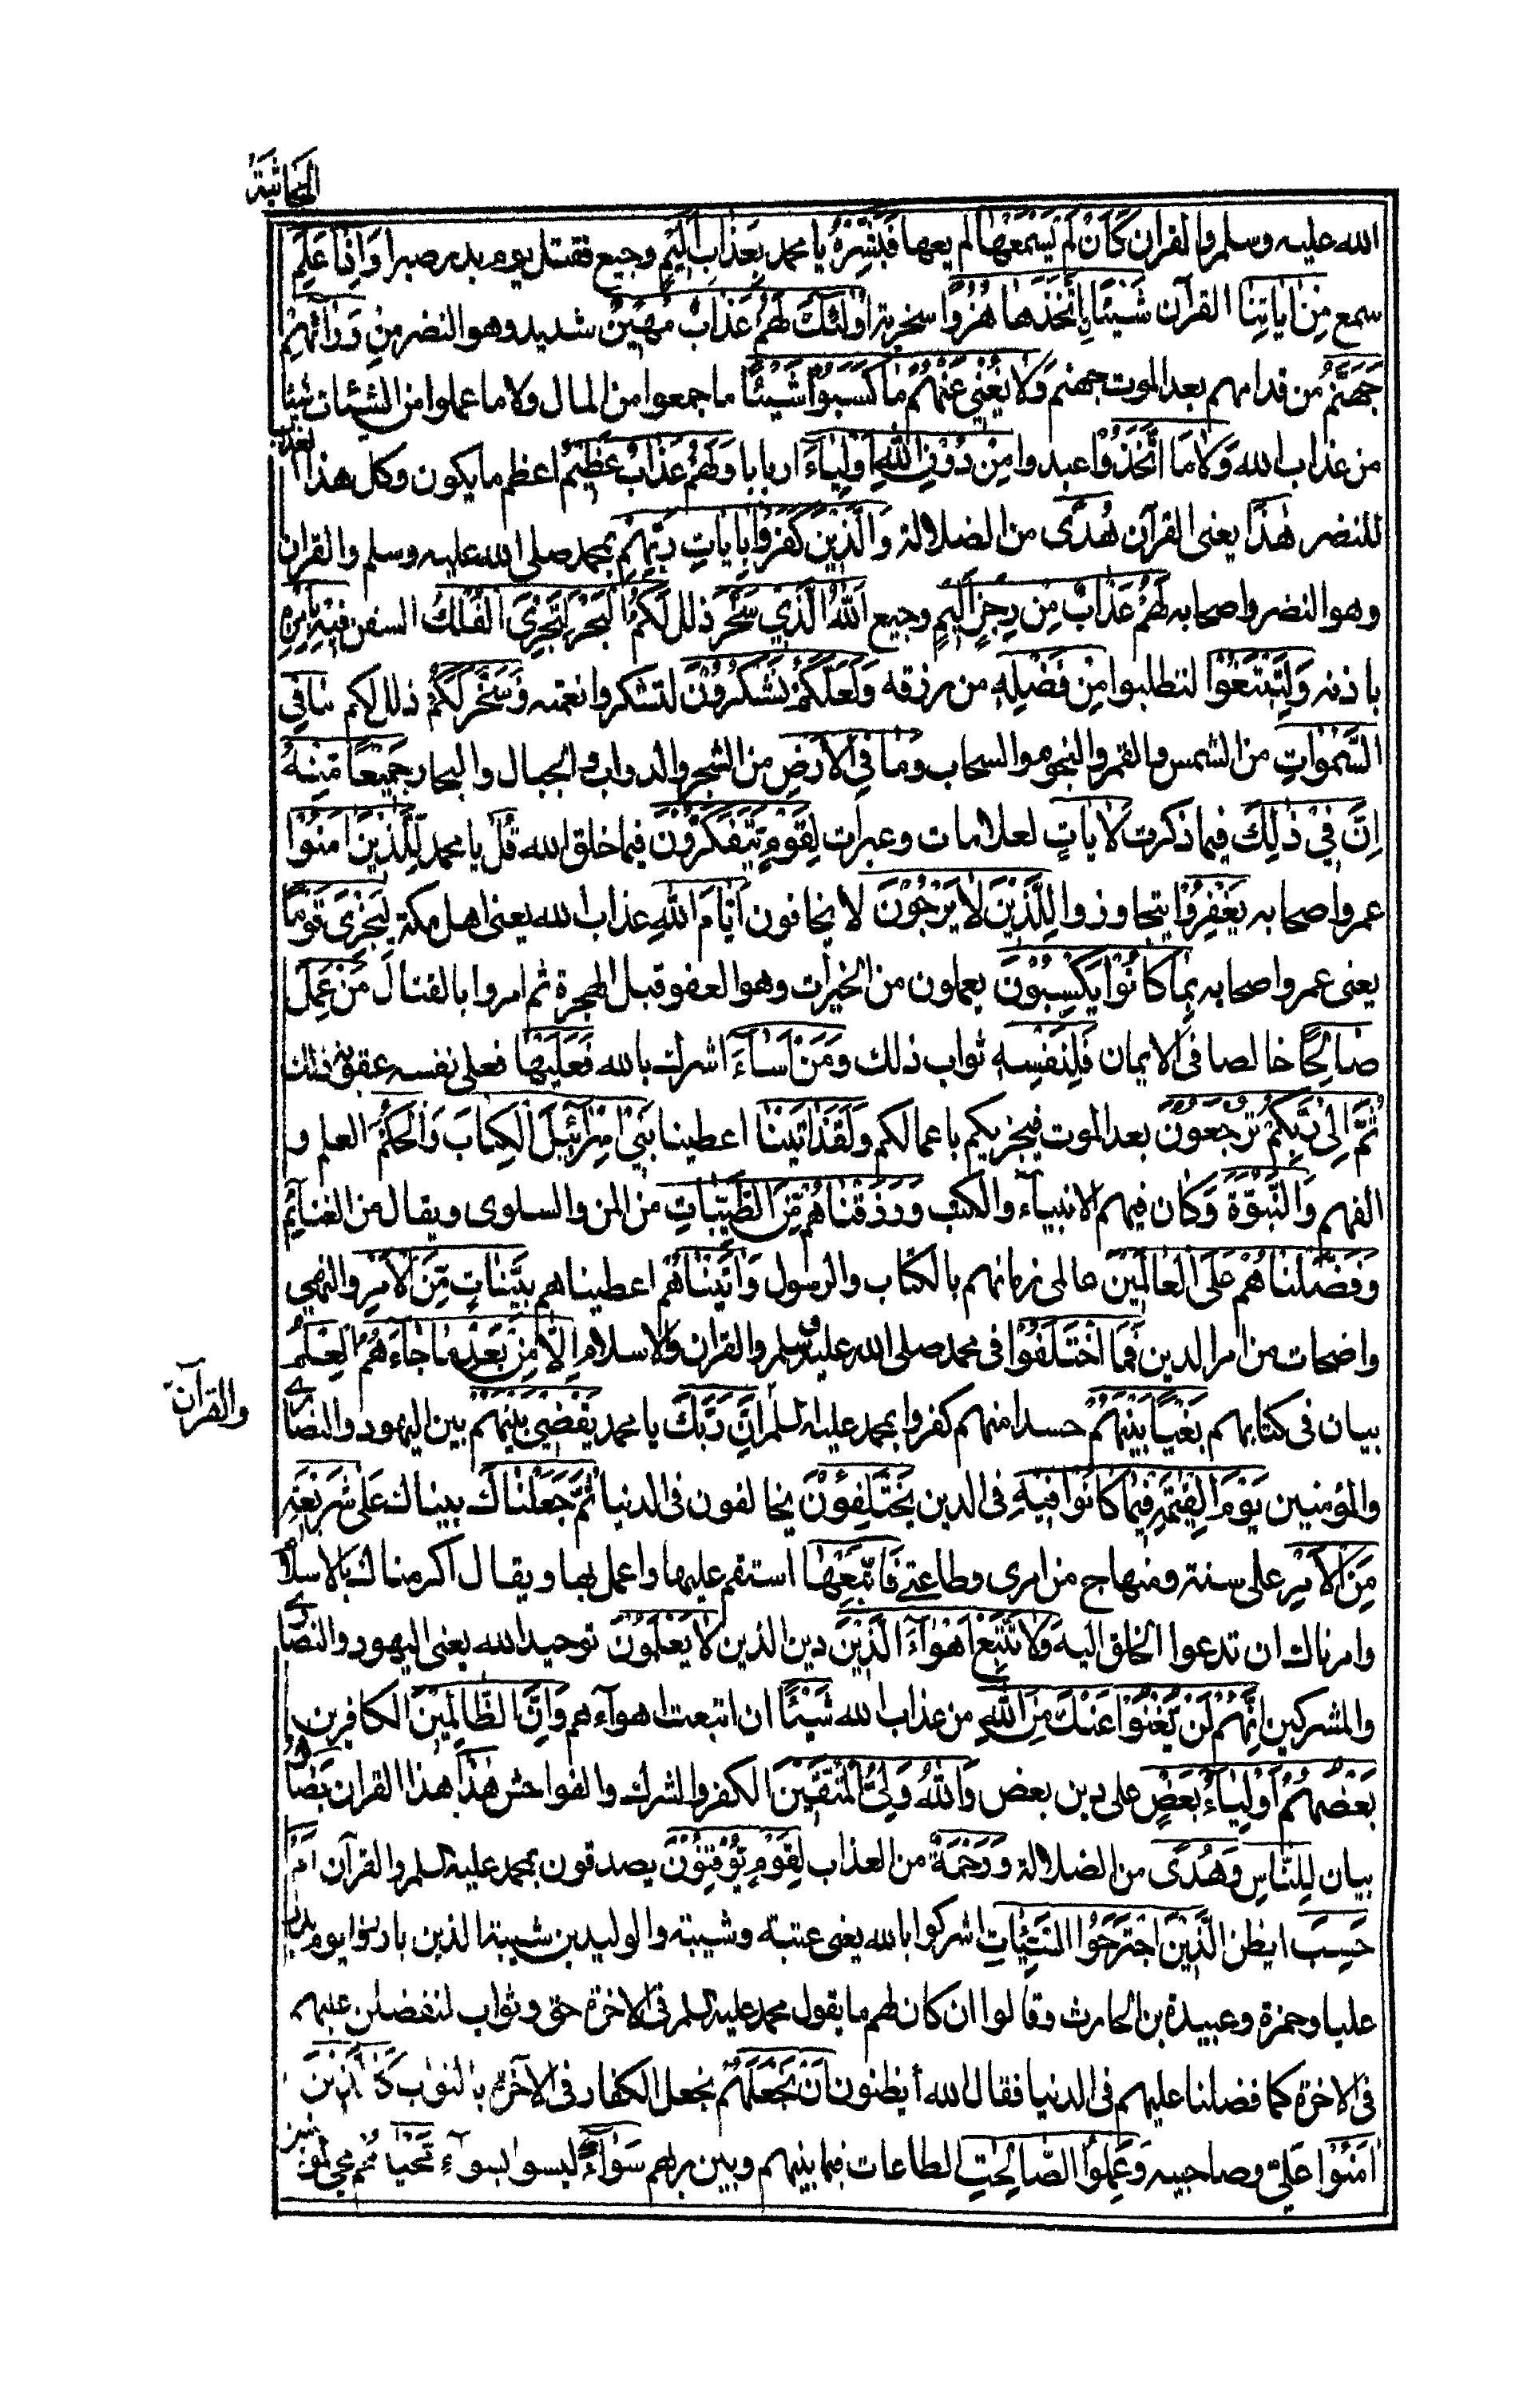 الجاثية
الله عليه وسلم والقرآن كَأَنْ لَمْ يَسْمَعْهَا لم يعها فَبَشِّرْهُ يا محمد بِعَذَابٍ أَلِيمٍ وجيع فقتل يوم بدر صبرا وَإِذَا عَلِمَ
سمع مِنْ اٰيَاتِنَا القرآن شَيْئًا اِتَّخَذَهَا هُزُوًا سخرية اُولٰئِكَ لَهُمْ عَذَابٌ مُهِينٌ شديد وهو النضر مِنْ وَرَائِهِمْ
جَهَنَّمُ من قدامهم بعد الموت جهنم وَلَا يُغْنِي عَنْهُمْ مَا كَسَبُوا شَيْئًا ما جمعوا من المال ولا ما عملوا من السيئات شيئا
من عذاب الله وَلَا مَا اتَّخَذُوا عبدوا مِنْ دُونِ اللهِ اَوْلِيَاءَ اربابا وَلَهُمْ عَذَابٌ عَظِيمٌ اعظم ما يكون وكل هذا العذاب
للنضر هٰذَا يعنى القرآن هُدًى من الضلالة وَالَّذِينَ كَفَرُوا بِاٰيَاتِ رَبِّهِمْ بمحمد صلى الله عليه وسلم والقران
وهو النضر واصحابه لَهُمْ عَذَابٌ مِنْ رِجْزٍ اَلِيمٍ وجيع اَللهُ الَّذِي سَخَّرَ ذلل لَكُمُ الْبَحْرَ لِتَجْرِيَ الْفُلْكُ السفن فِيهِ بِاَمْرِهِ
باذنه وَلِتَبْتَغُوا لتطلبوا مِنْ فَضْلِهِ من رزقه وَلَعَلَّكُمْ تَشْكُرُونَ لتشكروا نعمته وَسَخَّرَ لَكُمْ ذلل لكم مَا فِي
السَّمٰوَاتِ من الشمس والقمر والنجوم والسحاب وَمَا فِي الْاَرْضِ من الشجر والدواب والجبال والبحار جَمِيعًا مِنْهُ
اِنَّ فِي ذٰلِكَ فيما ذكرت لَاٰيَاتٍ لعلامات وعبرات لِقَوْمٍ يَتَفَكَّرُونَ فيما خلق الله قُلْ يا محمد لِلَّذِينَ اٰمَنُوا
عمر واصحابه يَغْفِرُوا يتجاوزوا لِلَّذِينَ لَا يَرْجُونَ لا يخافون اَيَّامَ اللهِ عذاب الله يعنى اهل مكة لِيَجْزِيَ قَوْمًا
يعنى عمر واصحابه بِمَا كَانُوا يَكْسِبُونَ يعملون من الخيرات وهو العفو قبل الهجرة ثم امروا بالقتال مَنْ عَمِلَ
صَالِحًا خالصا فى الايمان فَلِنَفْسِهِ ثواب ذلك وَمَنْ اَسَاءَ اشرك بالله فَعَلَيْهَا فعلى نفسه عقوبة ذلك
ثُمَّ اِلٰى رَبِّكُمْ تُرْجَعُونَ بعد الموت فيجزيكم باعمالكم وَلَقَدْ اٰتَيْنَا اعطينا بَنِي اِسْرَائِيلَ الْكِتَابَ وَالْحُكْمَ العلم و
الفهم وَالنُّبُوَّةَ وكان فيهم الانبياء والكتب وَرَزَقْنَاهُمْ مِنَ الطَّيِّبَاتِ من المن والسلوى ويقال من الغنائم
وَفَضَّلْنَاهُمْ عَلَى الْعَالَمِينَ عالمى زمانهم بالكتاب والرسول وَاٰتَيْنَاهُمْ اعطيناهم بَيِّنَاتٍ مِنَ الْاَمْرِ والنهي
واضحات من امر الدين فَمَا اخْتَلَفُوا فى محمد صلى الله عليه وسلم والقران والاسلام اِلَّا مِنْ بَعْدِ مَا جَاءَهُمُ الْعِلْمُ
بيان فى كتابهم بَغْيًا بَيْنَهُمْ حسدا منهم كفروا بمحمد عليه السلم اِنَّ رَبَّكَ يا محمد يَقْضِي بَيْنَهُمْ بين اليهود والنصارى
والقرآن
والمؤمنين يَوْمَ الْقِيٰمَةِ فِيمَا كَانُوا فِيهِ فى الدين يَخْتَلِفُونَ يخالفون فى الدنيا ثُمَّ جَعَلْنَاكَ بيناك عَلٰى شَرِيعَةٍ
مِنَ الْاَمْرِ على سنة ومنهاج من امرى وطاعتى فَاتَّبِعْهَا استقم عليها واعمل بها ويقال اكرمناك بالاسلام
وامرناك ان تدعوا الخلق اليه وَلَا تَتَّبِعْ اَهْوَاءَ الَّذِينَ دين الذين لَا يَعْلَمُونَ توحيد الله يعنى اليهود والنصارى
والمشركين اِنَّهُمْ لَنْ يُغْنُوا عَنْكَ مِنَ اللهِ من عذاب الله شَيْئًا ان اتبعت اهواءهم وَاِنَّ الظَّالِمِينَ الكافرين
بَعْضُهُمْ اَوْلِيَاءُ بَعْضٍ على دين بعض وَاللهُ وَلِيُّ الْمُتَّقِينَ الكفر والشرك والفواحش هٰذَا هذا القران بَصَائِرُ
بيان لِلنَّاسِ وَهُدًى من الضلالة وَرَحْمَةٌ من العذاب لِقَوْمٍ يُوقِنُونَ يصدقون بمحمد عليه السلم والقرآن اَمْ
حَسِبَ ايظن الَّذِينَ اجْتَرَحُوا السَّيِّئَاتِ اشركوا بالله يعنى عتبة وشيبة والوليد بن شيبة الذين بارزوا يوم بدر
عليا وحمزة وعبيدة بن الحارث وقالوا ان كان لهم ما يقول محمد عليه السلم فى الاخرة حق وثواب لنفضلن عليهم
فى الاخرة كما فضلنا عليهم فى الدنيا فقال الله أيظنون اَنْ نَجْعَلَهُمْ نجعل الكفار فى الآخرة بالثواب كَالَّذِينَ
اٰمَنُوا عَلِيّ وصاحبيه وَعَمِلُوا الصَّالِحٰتِ الطاعات فيما بينهم وبين ربهم سَوَاءً ليسوا بسواءِ مَحْيَاهُمْ